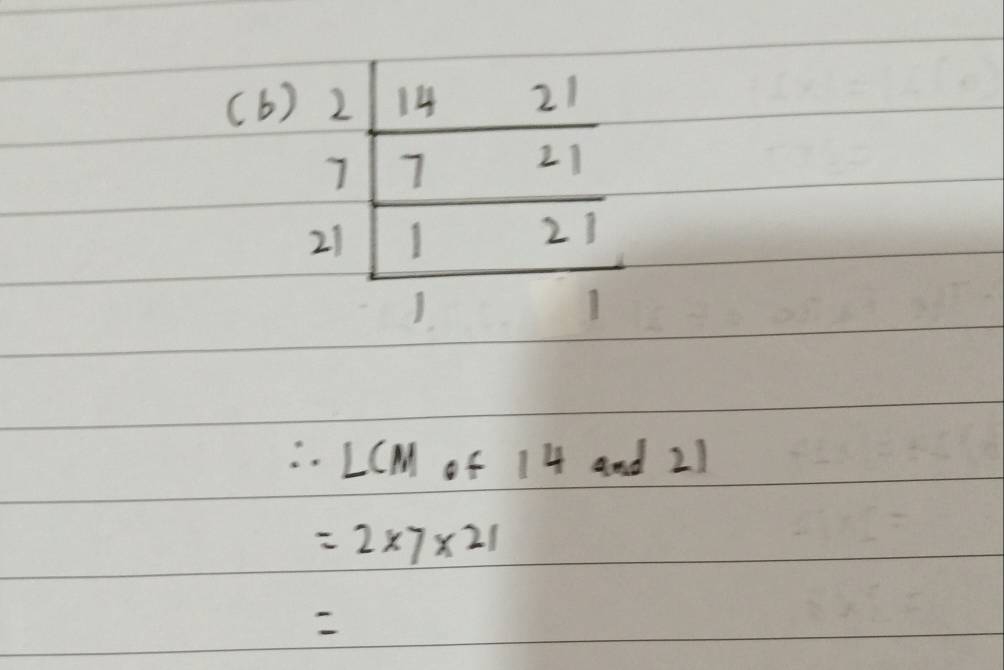 (b) 2 14 21
7 7 21
21 1 21
1 1
∴ LCM of 14 and 21
= 2×7×21
=